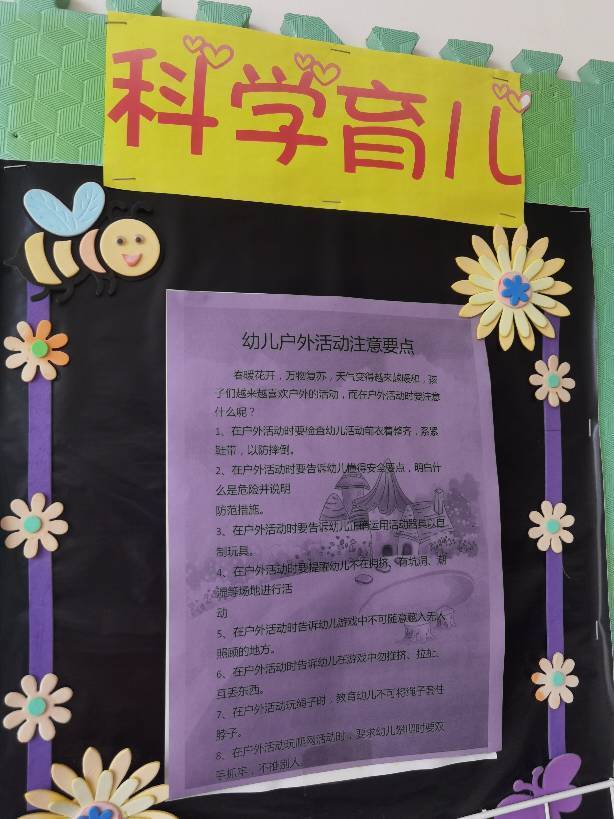 科学育儿
幼儿户外活动注意要点
春暖花开，万物复苏，天气变得越来越暖和，孩
子们越来越喜欢户外的活动，而在户外活动时要注意
什么呢？
1、在户外活动时要检查幼儿活动前衣着整齐，系紧
鞋带，以防摔倒。
2、在户外活动时要告诉幼儿懂得安全要点，明白什
么是危险并说明
防范措施。
3、在户外活动时要告诉幼儿正确运用活动器具以自
制玩具。
4、在户外活动时要提醒幼儿不在拥挤、有坑洞、潮
湿等场地进行活
动
5、在户外活动时告诉幼儿游戏中不可随意藏入无人
照顾的地方。
6、在户外活动时告诉幼儿在游戏中勿推挤、拉扯、
互丢东西。
7、在户外活动玩绳子时，教育幼儿不可把绳子套住
脖子。
8、在户外活动玩爬网活动时，要求幼儿攀爬时要双
手抓牢，不推别人。